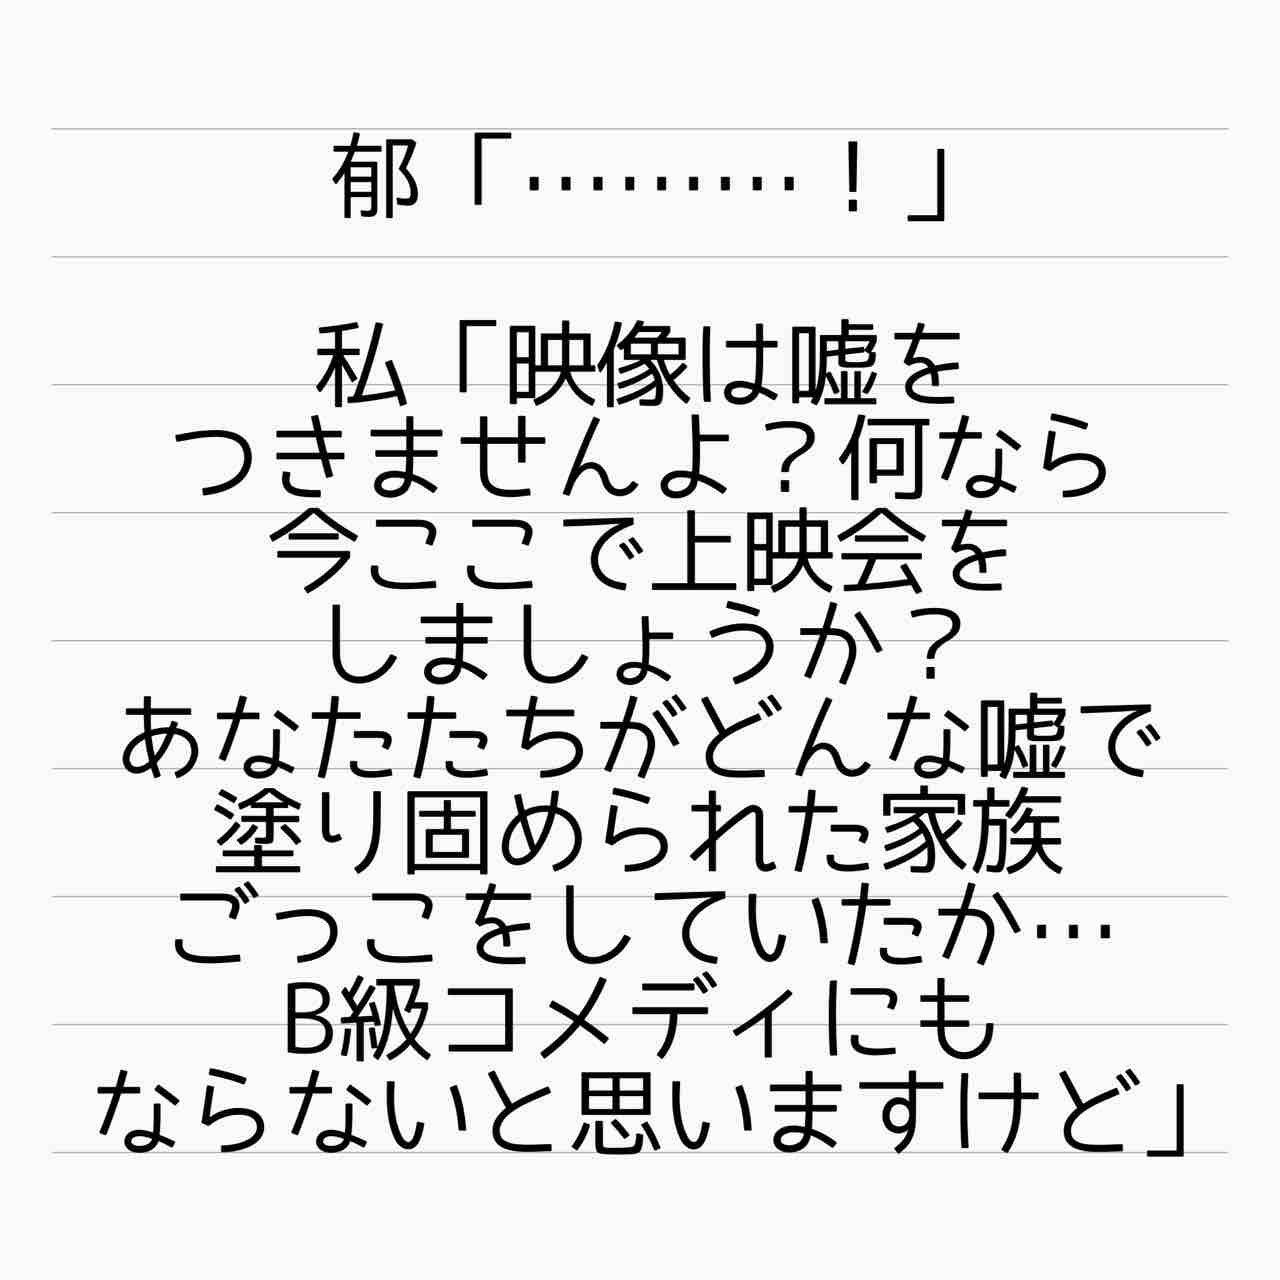 郁「………！」
私「映像は嘘を
つきませんよ？何なら
今ここで上映会を
しましょうか？
あなたたちがどんな嘘で
塗り固められた家族
ごっこをしていたか…
B級コメディにも
ならないと思いますけど」